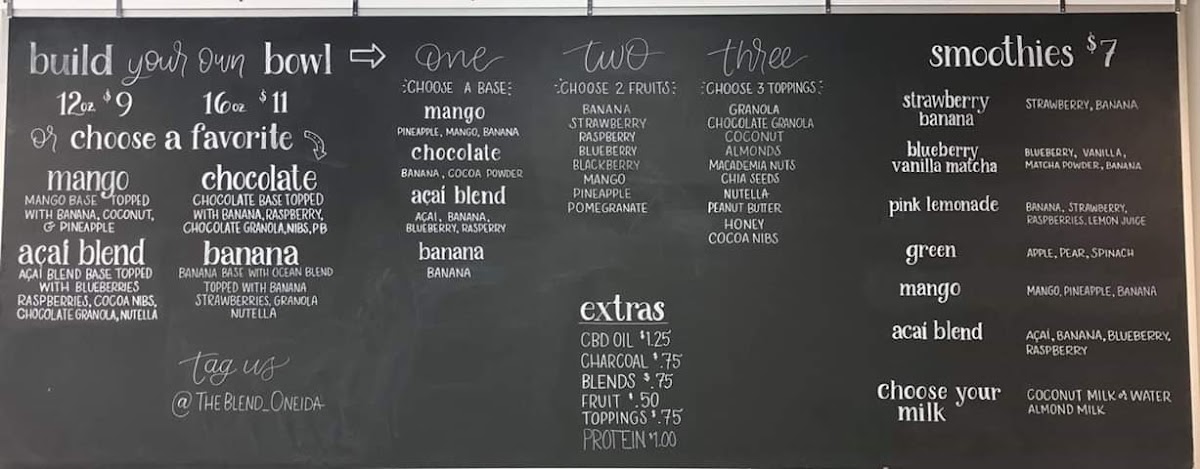 build your own bowl
12oz $9 16oz $11
or choose a favorite
mango
MANGO BASE TOPPED
WITH BANANA, COCONUT,
& PINEAPPLE
chocolate
CHOCOLATE BASE TOPPED
WITH BANANA, RASPBERRY,
CHOCOLATE GRANOLA, NIBS, PB
açaí blend
AÇAÍ BLEND BASE TOPPED
WITH BLUEBERRIES
RASPBERRIES, COCOA NIBS,
CHOCOLATE GRANOLA, NUTELLA
banana
BANANA BASE WITH OCEAN BLEND
TOPPED WITH BANANA
STRAWBERRIES, GRANOLA
NUTELLA
tag us
@THEBLEND_ONEIDA
one
CHOOSE A BASE:
mango
PINEAPPLE, MANGO, BANANA
chocolate
BANANA, COCOA POWDER
açaí blend
AÇAI, BANANA,
BLUEBERRY, RASPERRY
banana
BANANA
two
CHOOSE 2 FRUITS:
BANANA
STRAWBERRY
RASPBERRY
BLUEBERRY
BLACKBERRY
MANGO
PINEAPPLE
POMEGRANATE
three
CHOOSE 3 TOPPINGS:
GRANOLA
CHOCOLATE GRANOLA
COCONUT
ALMONDS
MACADEMIA NUTS
CHIA SEEDS
NUTELLA
PEANUT BUTTER
HONEY
COCOA NIBS
extras
CBD OIL $1.25
CHARCOAL $.75
BLENDS $.75
FRUIT $.50
TOPPINGS $.75
PROTEIN $1.00
smoothies $7
strawberry
banana
STRAWBERRY, BANANA
blueberry
vanilla matcha
BLUEBERRY, VANILLA,
MATCHA POWDER, BANANA
pink lemonade
BANANA, STRAWBERRY,
RASPBERRIES, LEMON JUICE
green
APPLE, PEAR, SPINACH
mango
MANGO, PINEAPPLE, BANANA
acai blend
AÇAÍ, BANANA, BLUEBERRY,
RASPBERRY
choose your
milk
COCONUT MILK & WATER
ALMOND MILK